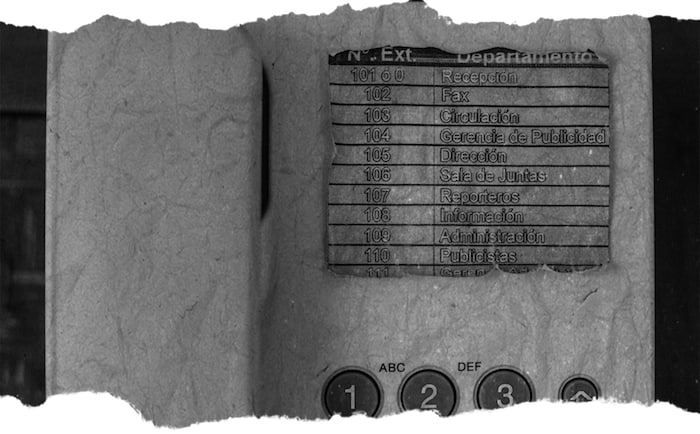 Nº. Ext. Departamento
101 ó 0 Recepción
102 Fax
103 Circulación
104 Gerencia de Publicidad
105 Dirección
106 Sala de Juntas
107 Reporteros
108 Información
109 Administración
110 Publicistas
111
ABC DEF
1 2 3